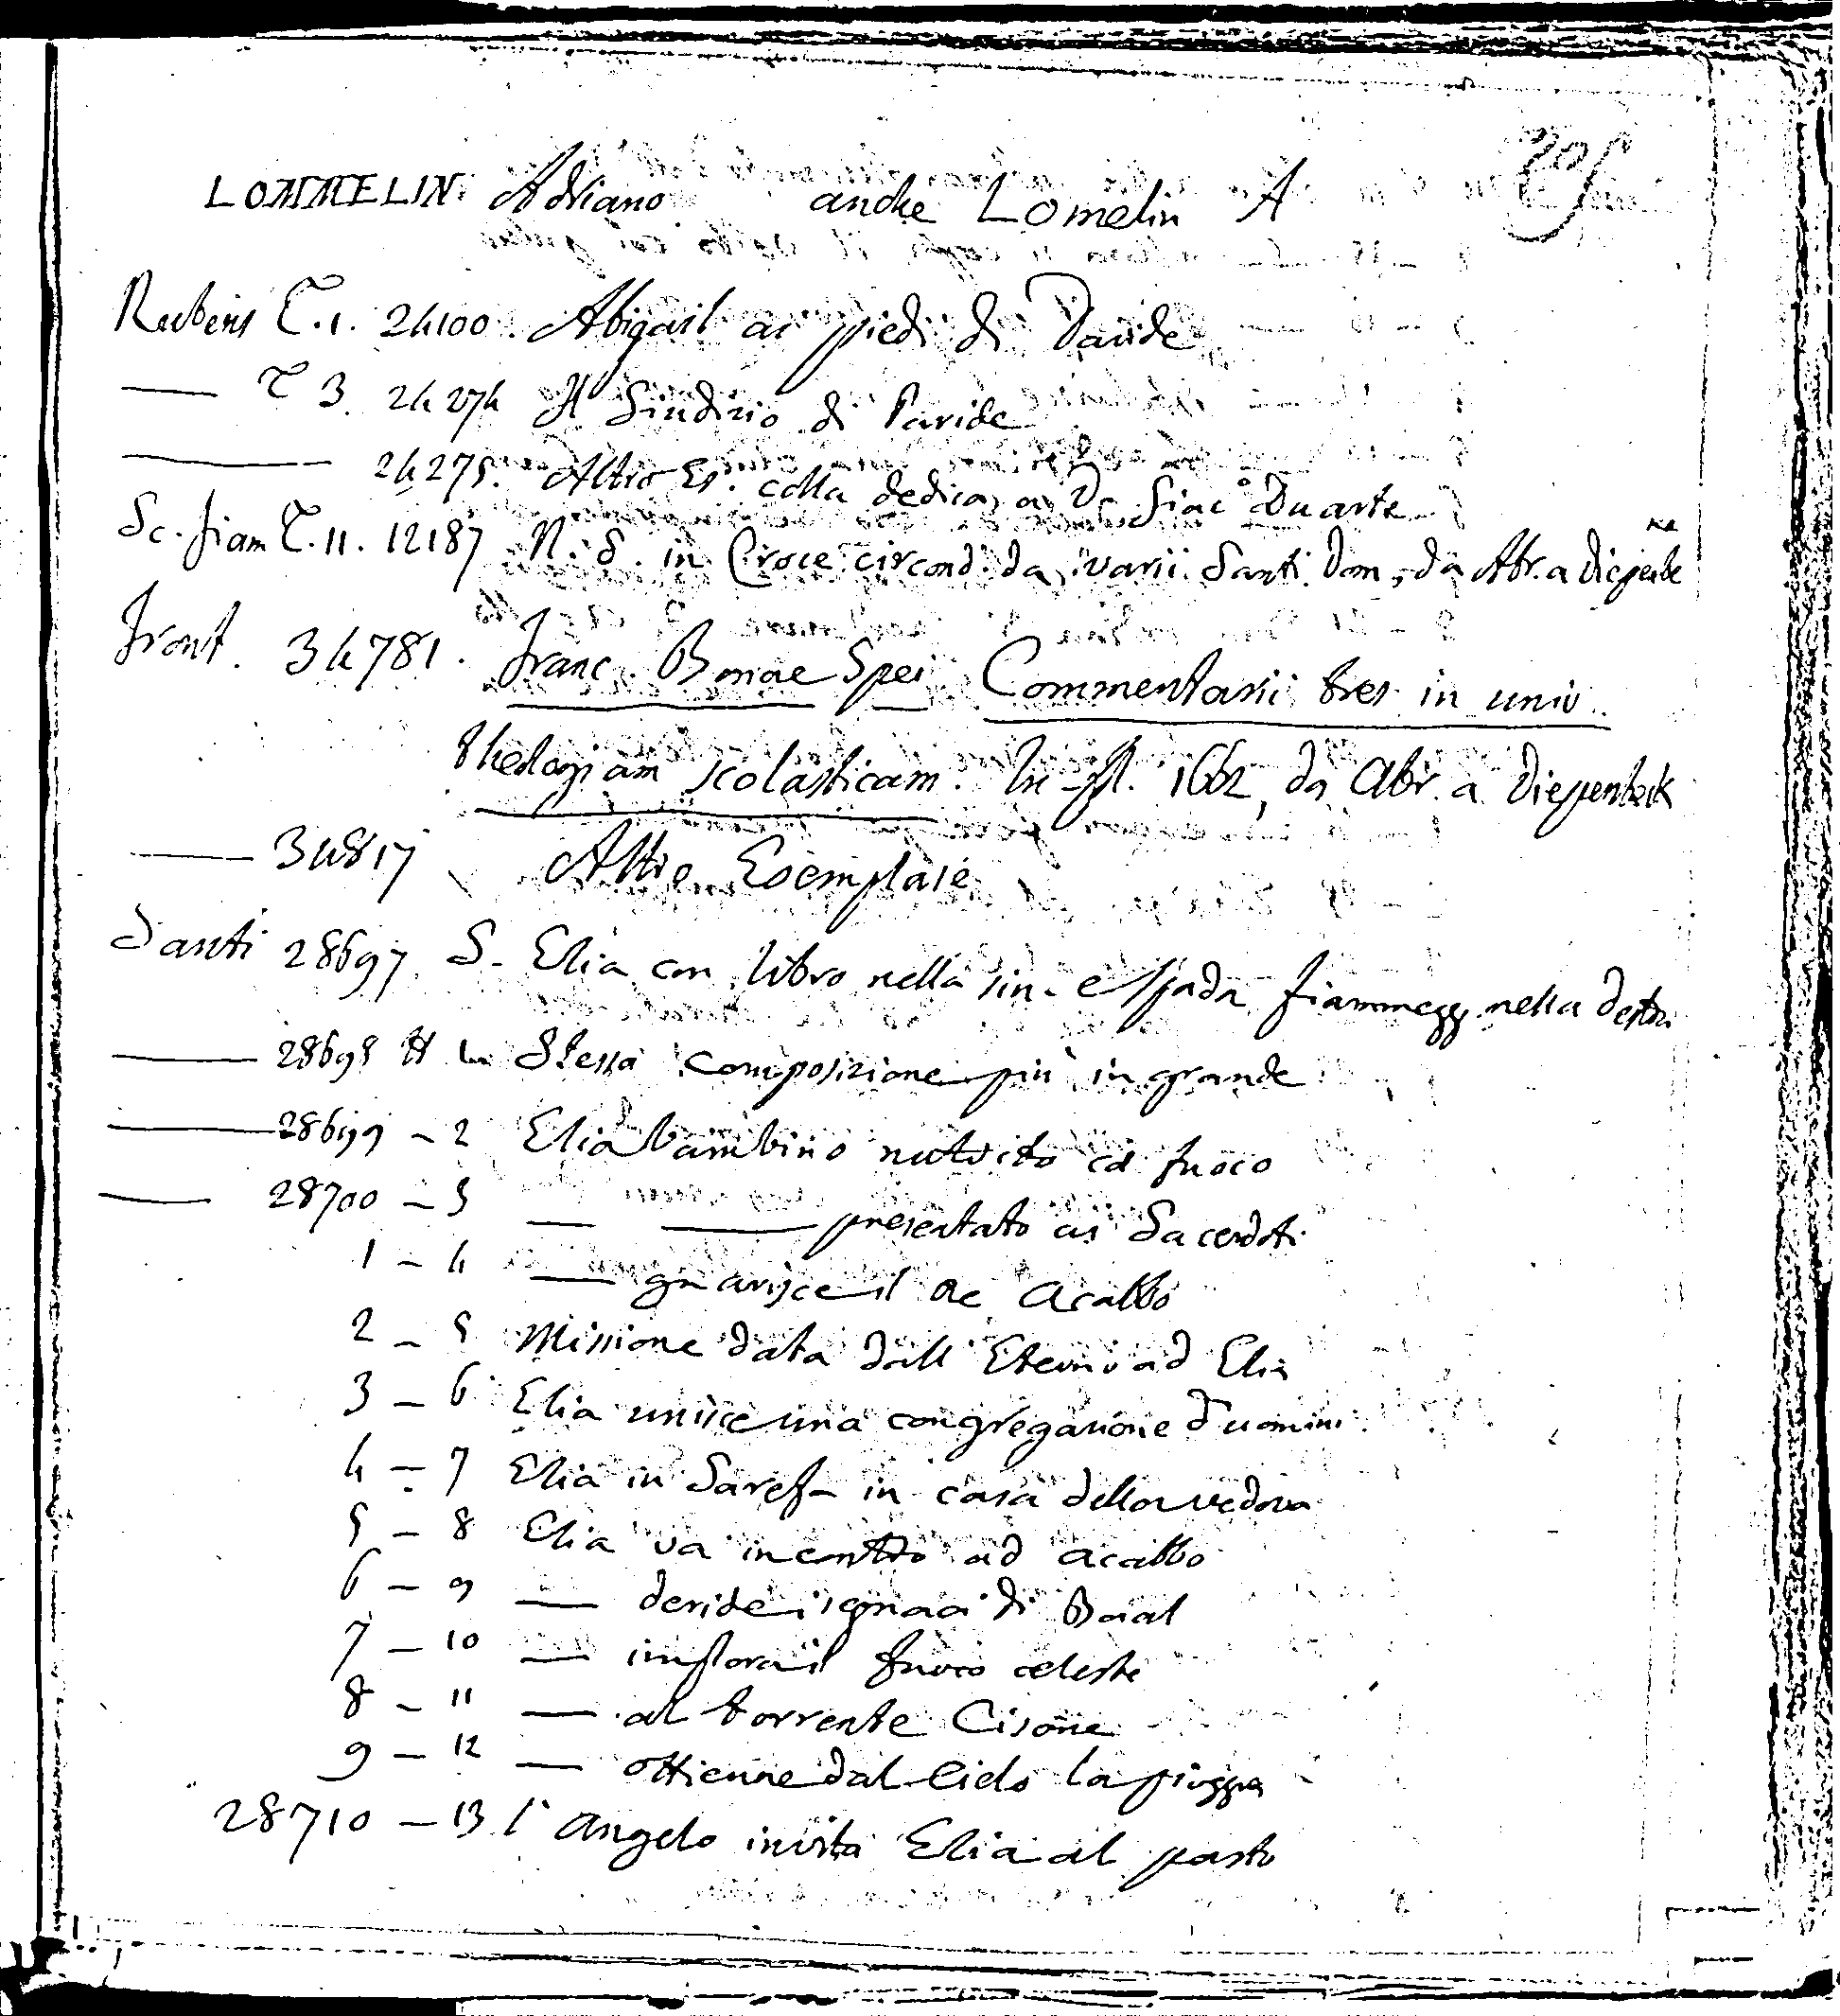 LOMMELIN Adriano anche Lomelin A
Rubens T. 1. 24100. Abigail ai piedi di Davide
— T 3. 24274 Il Giudizio di Paride
— 24275. Altro Es. colla dedica a D. Giac° Duarte
Sc. fiam T. 11. 12187 N. S. in Croce circond. da varii Santi Dom, da Abr. a Diepenbe
Front. 34781. Franc. Bonae Spei Commentarii tres in univ.
theologiam scolasticam. In fl. 1662, da Abr. a Diepenbeck
— 34817 Altro Esemplare
Santi 28697. S. Elia con libro nella sin. e spada fiammegg. nella destra
— 28698 Stessa composizione più in grande
— 28699 – 2 Elia bambino nutrito col fuoco
— 28700 – 3 — — presentato ai Sacerdoti
1 – 4 — guarisce il Re Acabbo
2 – 5 Missione data dall Eterno ad Elia
3 – 6 Elia unisce una congregazione d'uomini
4 – 7 Elia in Saref– in casa della vedova
5 – 8 Elia va incontro ad Acabbo
6 – 9 — deride i seguaci di Baal
7 – 10 — implora il fuoco celeste
8 – 11 — al torrente Cisone
9 – 12 — ottienne dal Cielo la pioggia
28710 – 13 l'Angelo invita Elia al pasto